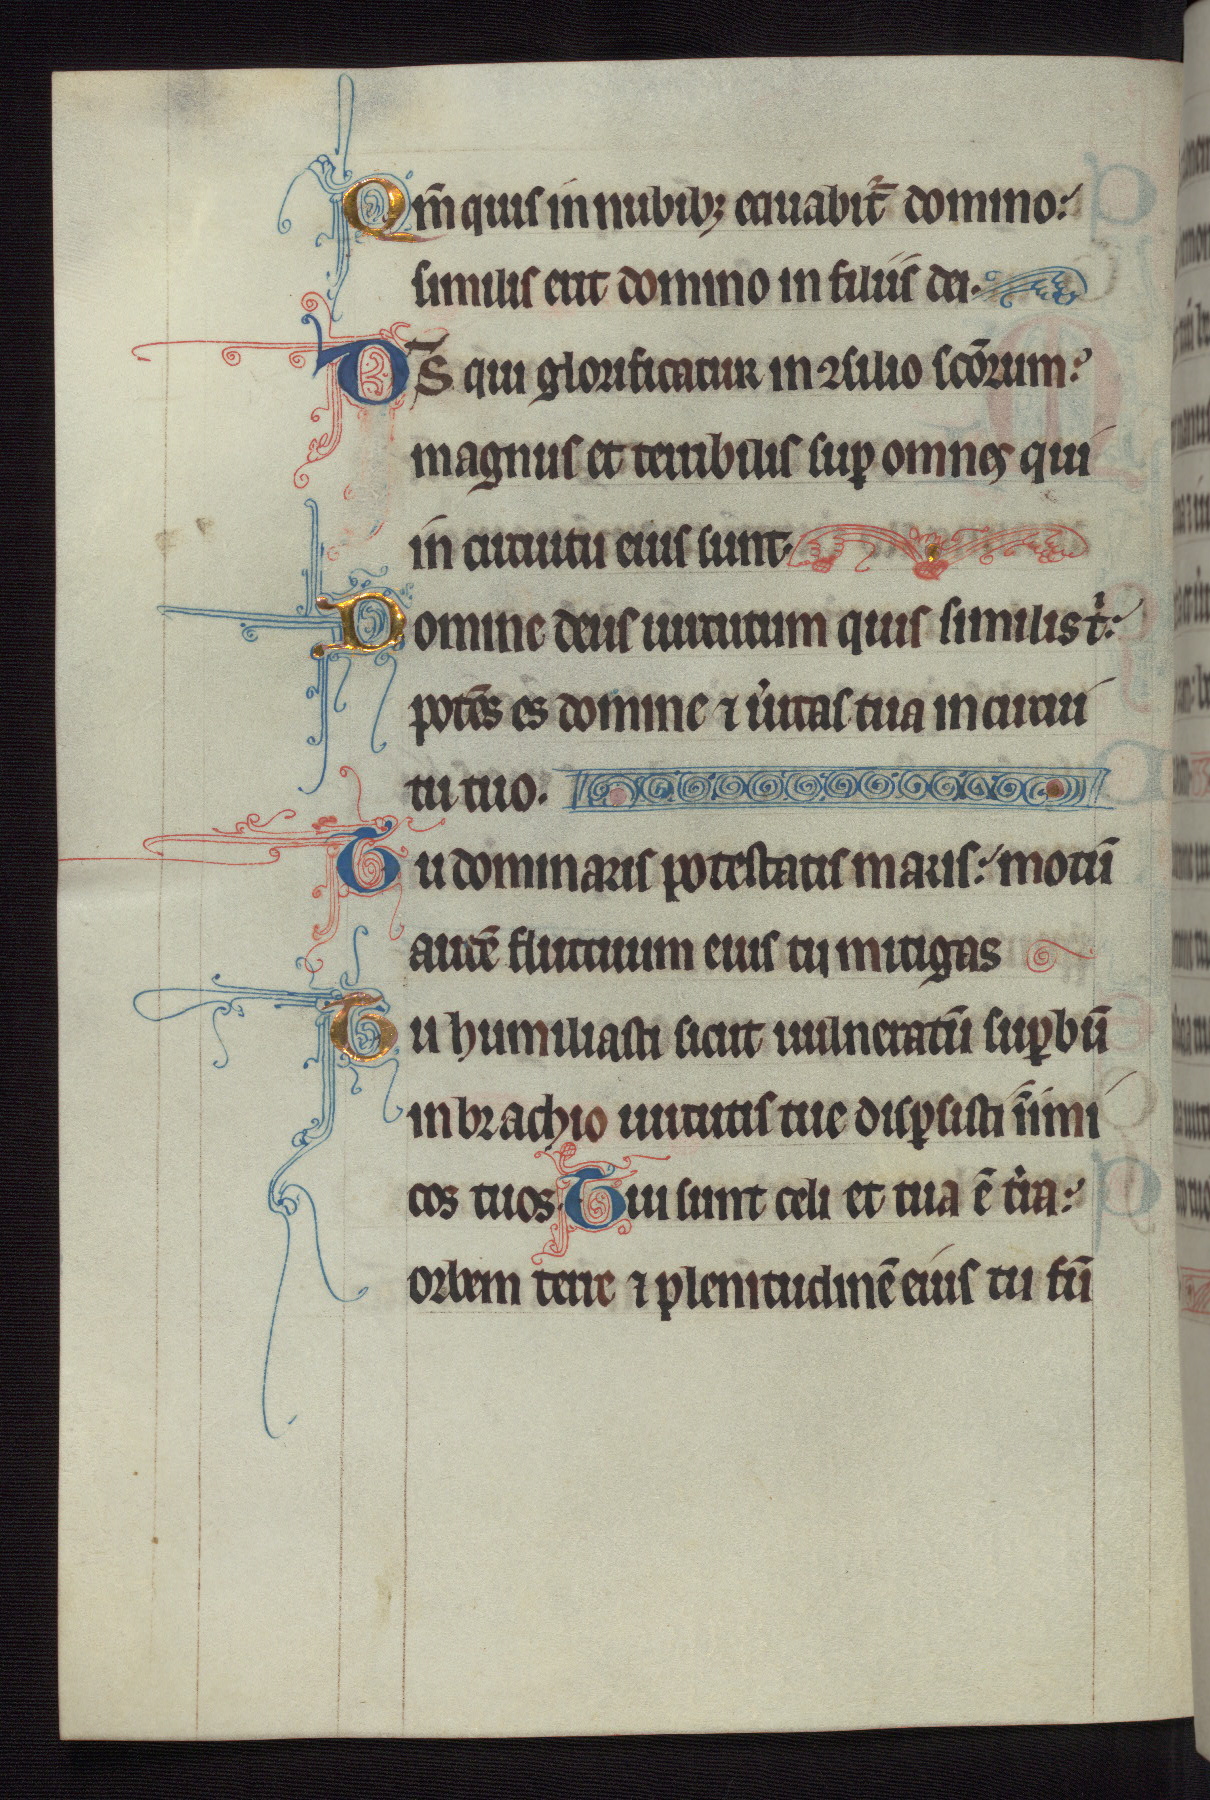 Qm̄ quis in nubibꝫ equabit᷑ domino:
similis erit domino in filiis dei.
D̄S qui glorificatur in ꝯsilio scōrum:
magnus et terribilis suꝑ omnes qui
in circuitu eius sunt.
Domine deus uirtutum quis similis t̾:
potēs es domine ⁊ u̾itas tua in circui
tu tuo.
Tu dominaris potestatis maris: motū
autē fluctuum eius tu mitigas
Tu humiliasti sicut uulneratū suꝑbū
in brachio uirtutis tue disꝑsisti inimi
cos tuos. Tui sunt celi et tua ē t̾ra:
orbem terre ⁊ plenitudinē eius tu fū